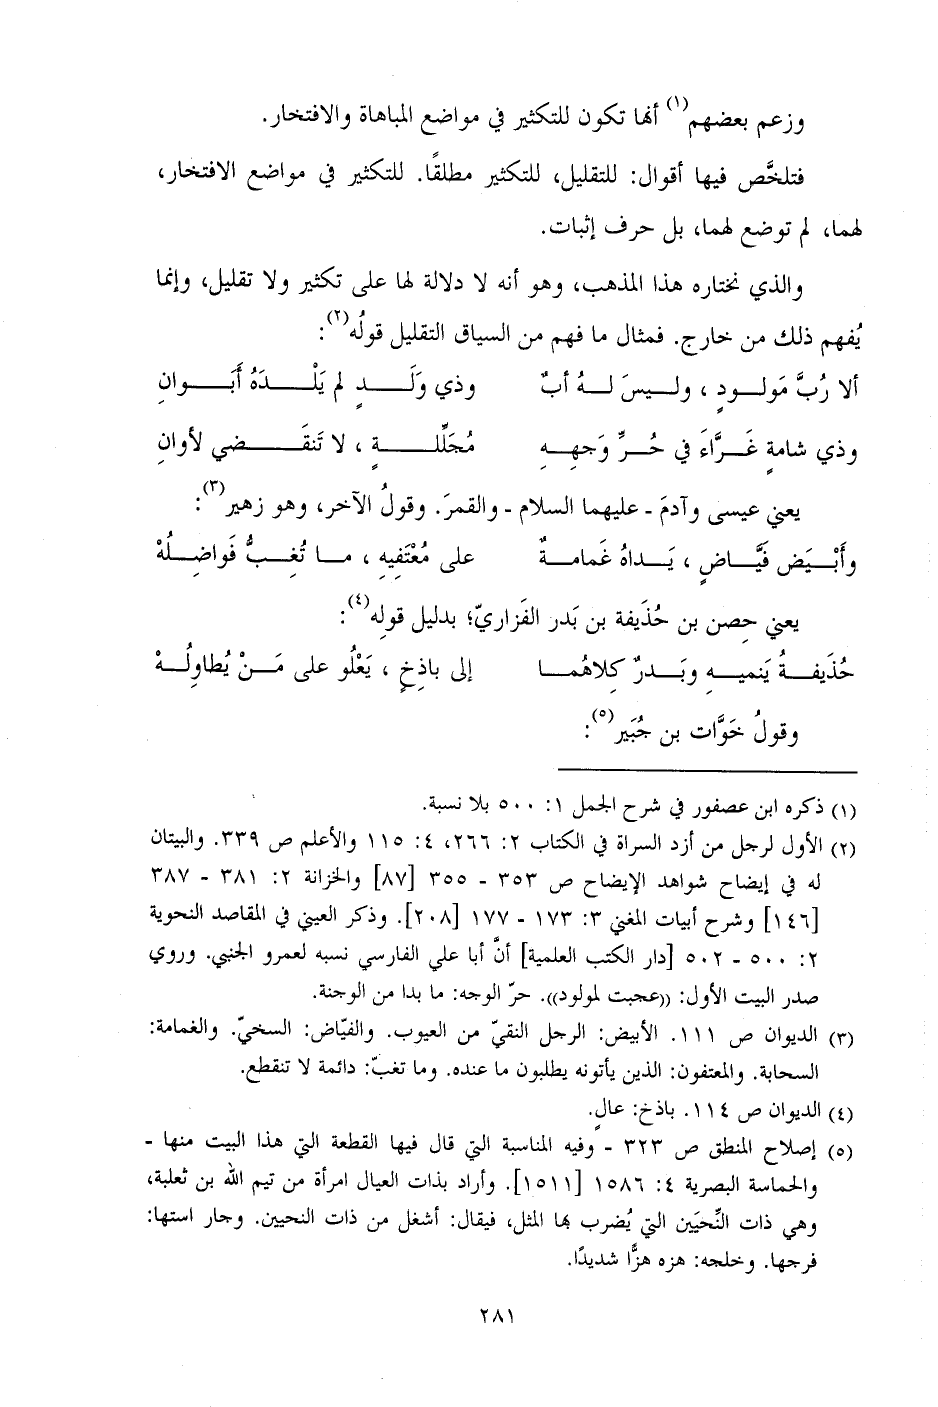 وزعم بعضهم(١) أنها تكون للتكثير في مواضع المباهاة والافتخار.
فتلخَّص فيها أقوال: للتقليل، للتكثير مطلقًا. للتكثير في مواضع الافتخار،
لهما، لم توضع لهما، بل حرف إثبات.
والذي نختاره هذا المذهب، وهو أنه لا دلالة لها على تكثير ولا تقليل، وإنما
يُفهم ذلك من خارج. فمثال ما فهم من السياق التقليل قولُه(٢):
ألا رُبَّ مَولودٍ ، وليسَ لهُ أبٌ وذي وَلَدٍ لم يَلْدَهُ أَبَوانِ
وذي شامةٍ غَرَّاءَ في حُرِّ وَجهِهِ مُجَلِّلةٍ ، لا تَنقَضي لأوانِ
يعني عيسى وآدمَ - عليهما السلام - والقمرَ. وقولُ الآخر، وهو زهير(٣):
وأَبْيَضَ فَيَّاضٍ ، يَداهُ غَمامةٌ على مُعْتَفيهِ ، ما تُغِبُّ فَواضِلُهْ
يعني حِصن بن حُذَيفة بن بَدر الفَزاريّ؛ بدليل قولِه(٤):
حُذَيفةُ يَنميهِ وبَدرٌ كِلاهُما إلى باذِخٍ ، يَعْلُو على مَنْ يُطاوِلُهْ
وقولُ خَوَّات بن جُبَير(٥):
(١) ذكره ابن عصفور في شرح الجمل ١: ٥٠٠ بلا نسبة.
(٢) الأول لرجل من أزد السراة في الكتاب ٢: ٢٦٦، ٤: ١١٥ والأعلم ص ٣٣٩. والبيتان
له في إيضاح شواهد الإيضاح ص ٣٥٣ - ٣٥٥ [٨٧] والخزانة ٢: ٣٨١ - ٣٨٧
[١٤٦] وشرح أبيات المغني ٣: ١٧٣ - ١٧٧ [٢٠٨]. وذكر العيني في المقاصد النحوية
٢: ٥٠٠ - ٥٠٢ [دار الكتب العلمية] أنَّ أبا علي الفارسي نسبه لعمرو الجنبي. وروي
صدر البيت الأول: ((عجبت لمولود)). حرّ الوجه: ما بدا من الوجنة.
(٣) الديوان ص ١١١. الأبيض: الرجل النقيّ من العيوب. والفيّاض: السخيّ. والغمامة:
السحابة. والمعتفون: الذين يأتونه يطلبون ما عنده. وما تغبّ: دائمة لا تنقطع.
(٤) الديوان ص ١١٤. باذخ: عالٍ.
(٥) إصلاح المنطق ص ٣٢٣ - وفيه المناسبة التي قال فيها القطعة التي هذا البيت منها -
والحماسة البصرية ٤: ١٥٨٦ [١٥١١]. وأراد بذات العيال امرأة من تيم الله بن ثعلبة،
وهي ذات النِّحيَين التي يُضرب بها المثل، فيقال: أشغل من ذات النحيين. وجار استها:
فرجها. وخلجه: هزه هزًّا شديدًا.
٢٨١